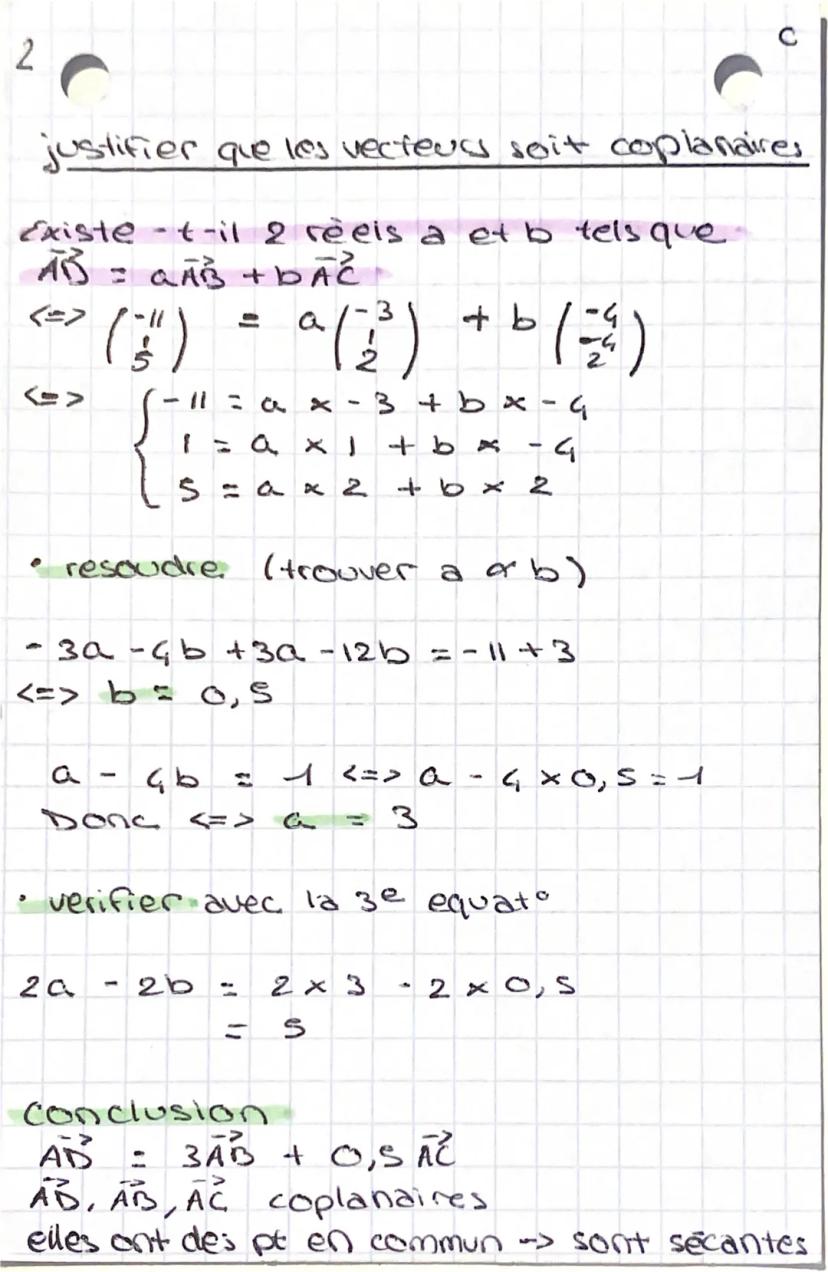 2
C
justifier que les vecteurs soit coplanaires
Existe-t-il 2 réels a et b tels que
AD⃗ = aAB⃗ + bAC⃗
<=> (-11 1 5) = a (-3 1 2) + b (-4 -4 2)
<=> { -11 = a x -3 + b x -4
1 = a x 1 + b x -4
5 = a x 2 + b x 2
• resoudre (trouver a & b)
-3a -4b +3a -12b = -11 +3
<=> b = 0,5
a - 4b = 1 <=> a - 4 x 0,5 = 1
Donc <=> a = 3
• verifier avec la 3e equat°
2a - 2b = 2 x 3 - 2 x 0,5
= 5
conclusion
AD⃗ = 3AB⃗ + 0,5 AC⃗
AD⃗, AB⃗, AC⃗ coplanaires
elles ont des pt en commun -> sont sécantes